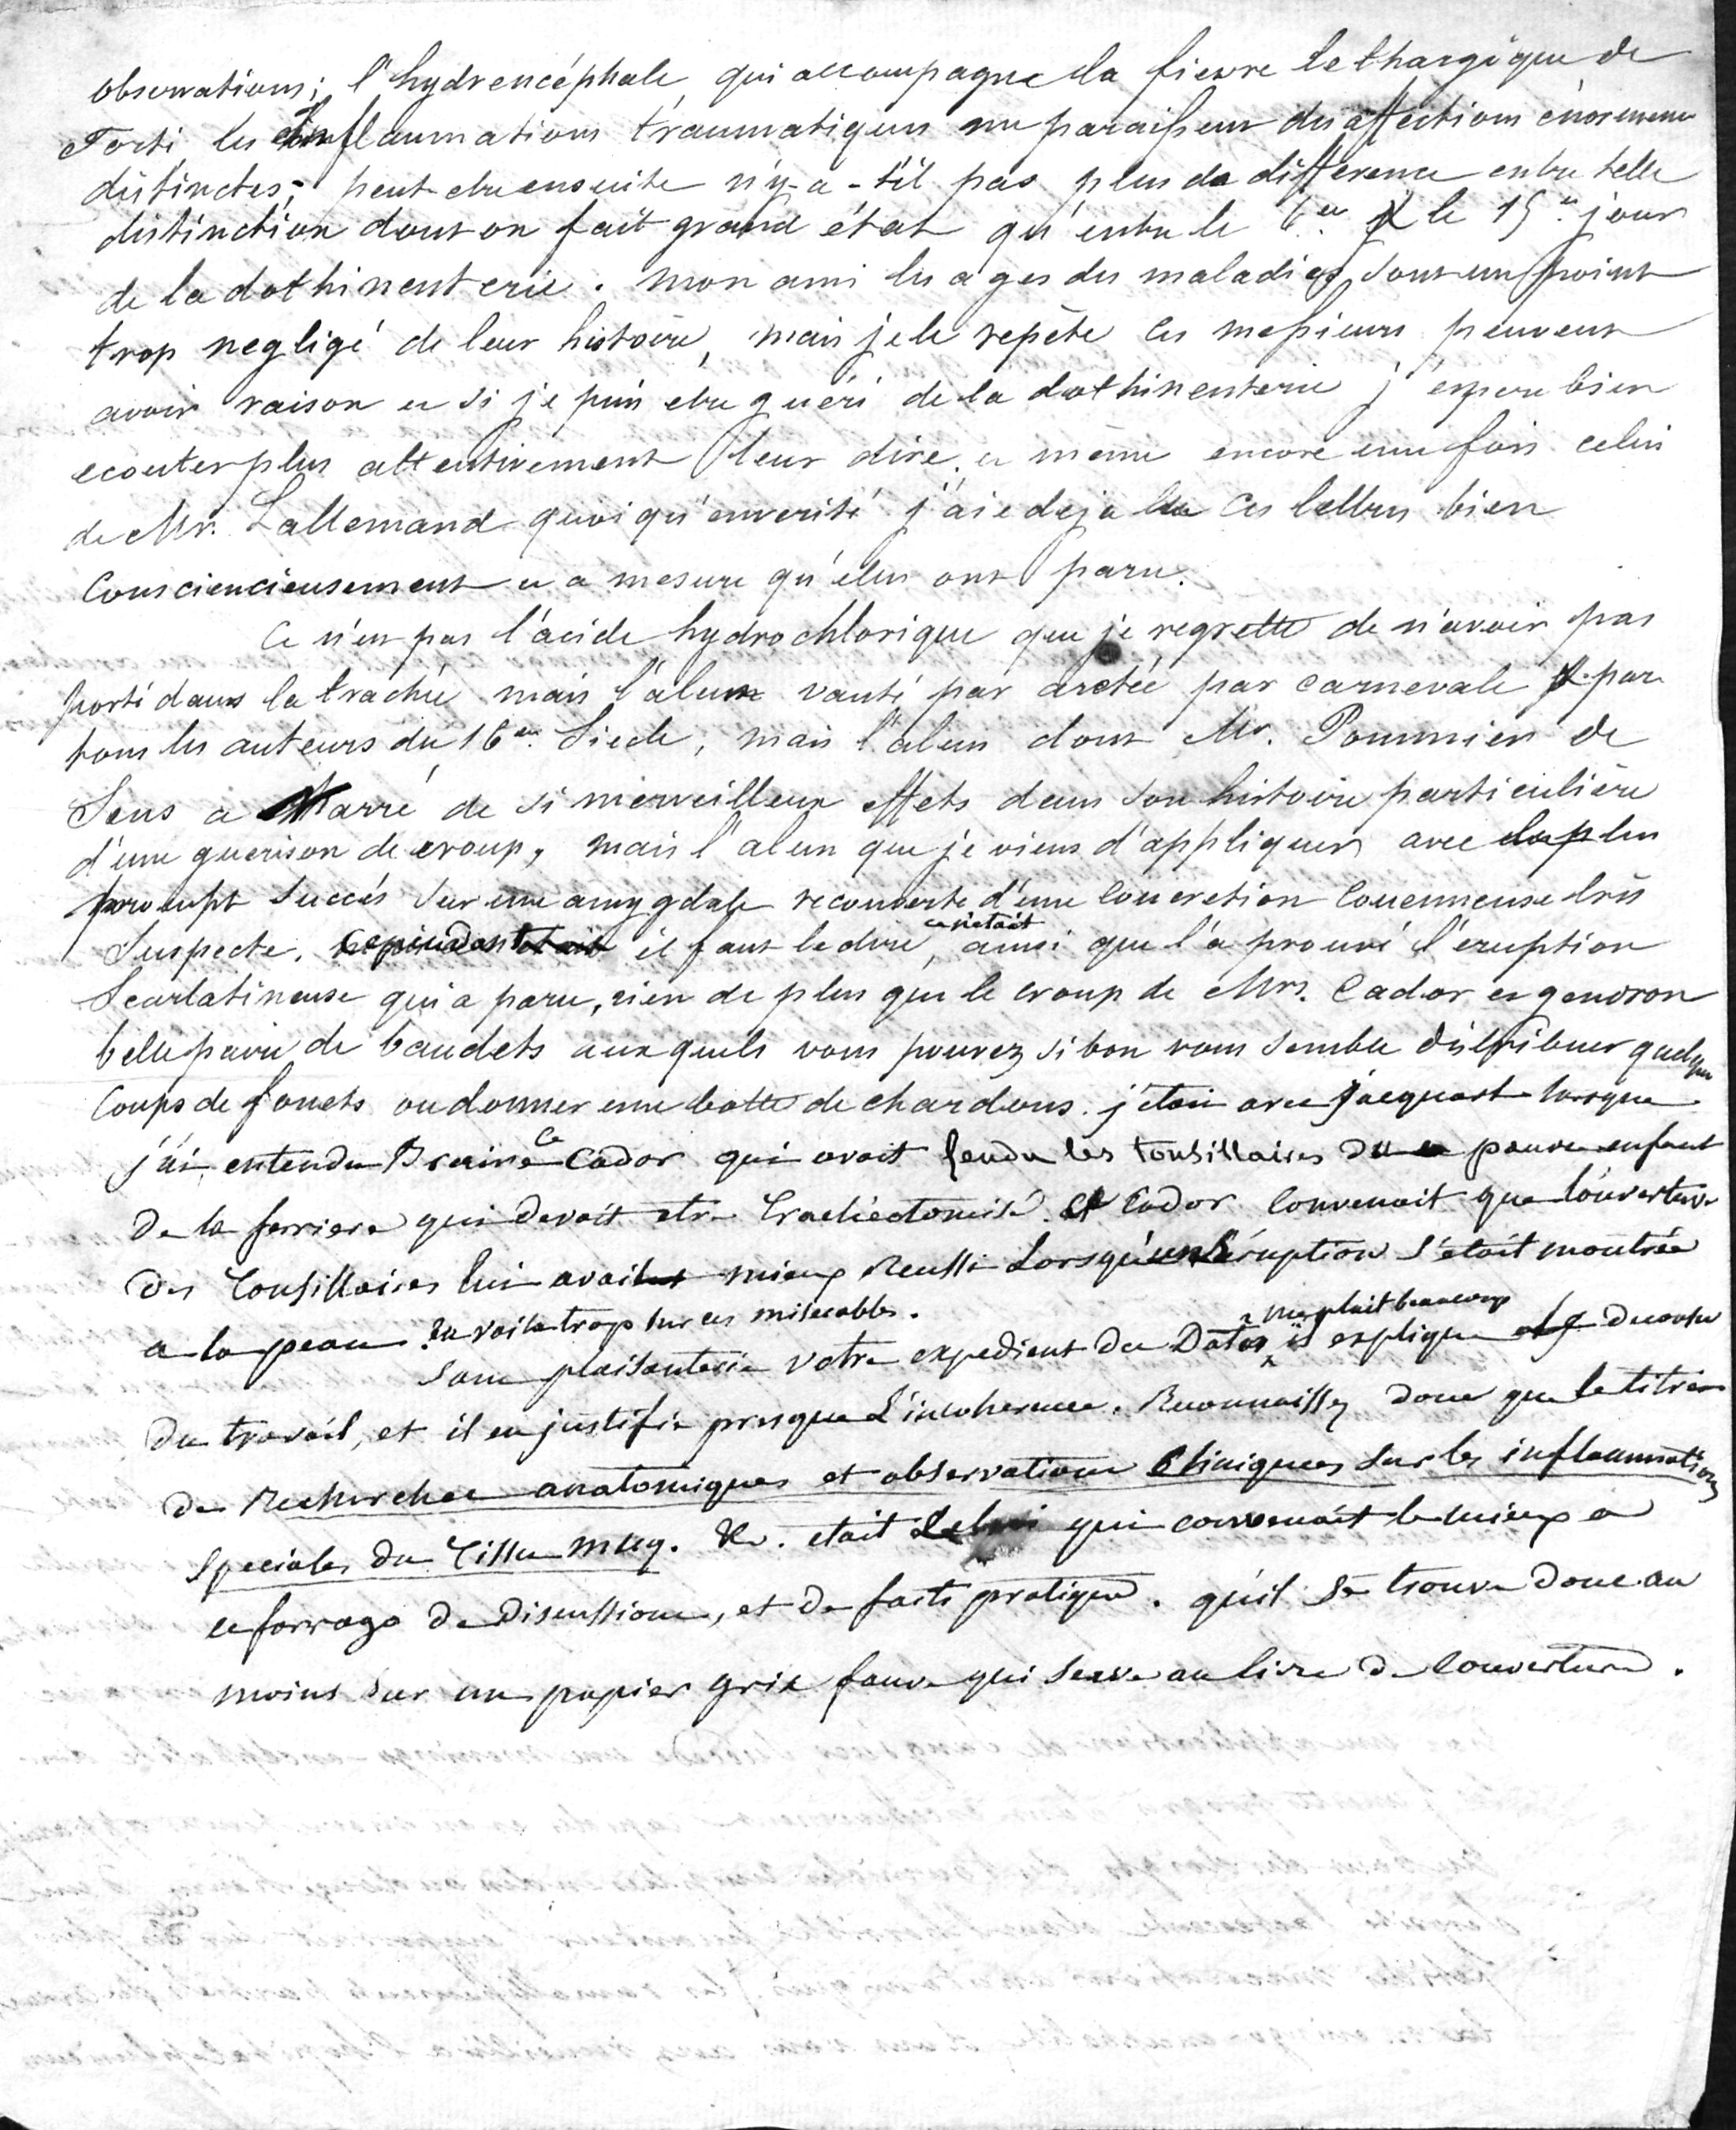 observations; l'hydrencéphale qui accompagne la fievre lethargique de
Torti, les inflammations traumatiques me paraissent des affections énormement
distinctes; peut etre ensuite n'y-a-t'il pas plus de différence entre telle
distinction dont on fait grand état qu'entre le 6e. & le 15e. jour
de la dothinenterie. mon ami les ages des maladies sont un point
trop negligé de leur histoire, mais je le repète ces messieurs peuvent
avoir raison et si je puis etre guéri de la dothinenterie j'espere bien
ecouter plus attentivement leur dire, et même encore une fois celui
de Mr. Lallemand quoiqu'en verité j'aie deja lu ces lettres bien
Consciencieusement et a mesure qu'elles ont paru.
Ce n'est pas l'acide hydrochlorique que je regrette de n'avoir pas
porté dans la trachée mais l'alun vanté par arétée par carnevale & par
tous les auteurs du 16e. Siecle, mais l'alun dont Mr. Pommier de
Sens a narré de si merveilleux effets dans son histoire particulière
d'une guerison de croup, mais l'alun que je viens d'appliquer avec le plus
prompt succés sur une amygdale recouverte d'une concretion couenneuse très
Suspecte. cependant il faut le dire, ce n'etait ainsi que l'a prouvé l'eruption
Scarlatineuse qui a paru, rien de plus que le croup de Mrs. Cador et gendron
belle paire de baudets aux quels vous pouvez si bon vous semble distribuer quelques
Coups de fouets ou donner une botte de chardons. j'étais avec jacquart lorsque
j'ai entendu braire ce Cador qui avait fendu les tonsillaires du pauvre enfant
de la ferriere qui devait etre Tracheotomisé. et Cador Convenait que l'ouverture
des Tonsillaires lui avait mieux reussi Lorsqu'une eruption s'était montrée
a la peau. En voila trop sur ces miserables.
Sans plaisanterie votre expedient des Dates me plait beaucoup il explique le decousu
du travail, et il en justifie presque L'incoherence. Reconnaissez donc que le titre
de Recherches anatomiques et observations Cliniques sur les inflammations
Speciales du Tissu muq. &c. etait Celui qui convenait le mieux a
ce farrago de discussions, et de faits pratiques. qu'il se trouve donc au
moins sur un papier gris fauve qui serve au livre de Couverture.